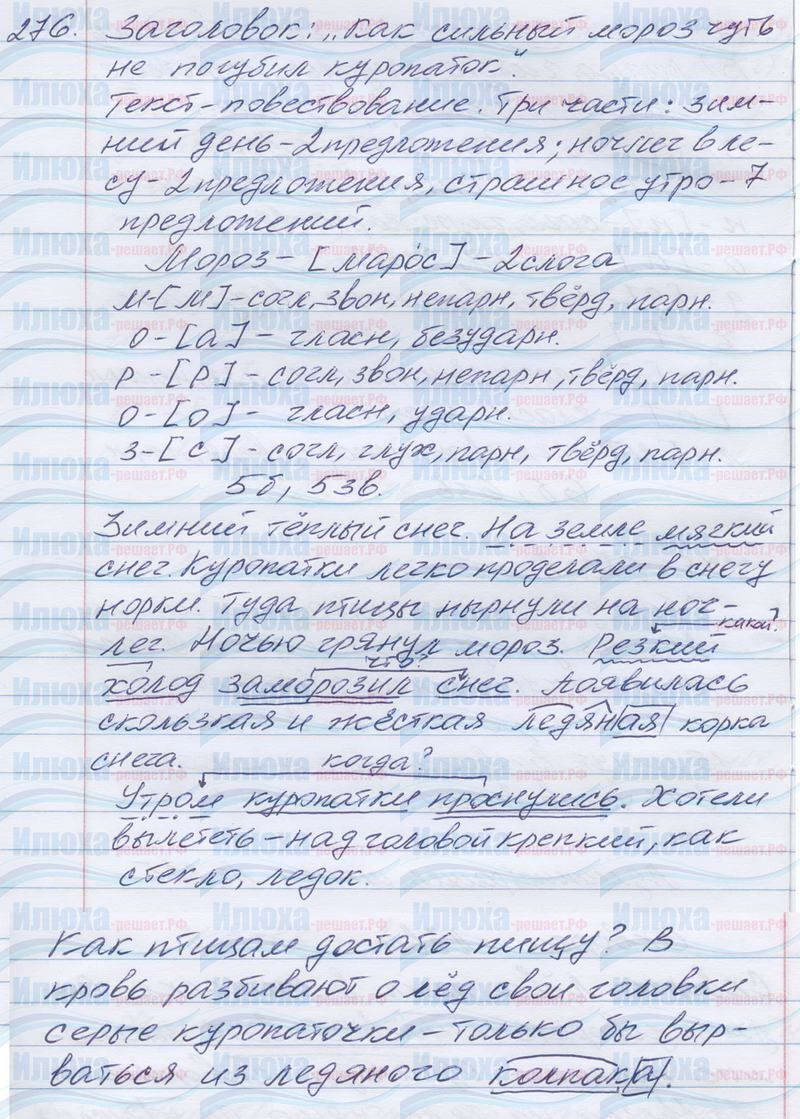 276. Заголовок: „Как сильный мороз чуть
не погубил куропаток".
Текст-повествование. Три части: зим-
ний день-2предложения; ночлег в ле-
су-2предложения, страшное утро-7
предложений.
Мороз- [маро́с] - 2слога
м-[м]-согл, звон, непарн, твёрд, парн.
о-[а] - гласн, безударн.
р-[р] - согл, звон, непарн, твёрд, парн.
о-[о] - гласн, ударн.
з-[с] - согл, глух, парн, твёрд, парн.
5б, 5зв.
Зимний тёплый снег. На земле мягкий
снег. Куропатки легко проделали в снегу
норки. Туда птицы нырнули на ноч-
какой?
лег. Ночью грянул мороз. Резкий
что?
холод заморозил снег. Появилась
скользкая и жёсткая ледяная корка
снега. когда?
Утром куропатки проснулись. Хотели
вылететь-над головой крепкий, как
стекло, ледок.
Как птицам достать пищу? В
кровь разбивают о лёд свои головки
серые куропаточки-только бы выр-
ваться из ледяного колпака.
Илюха-решает.РФ